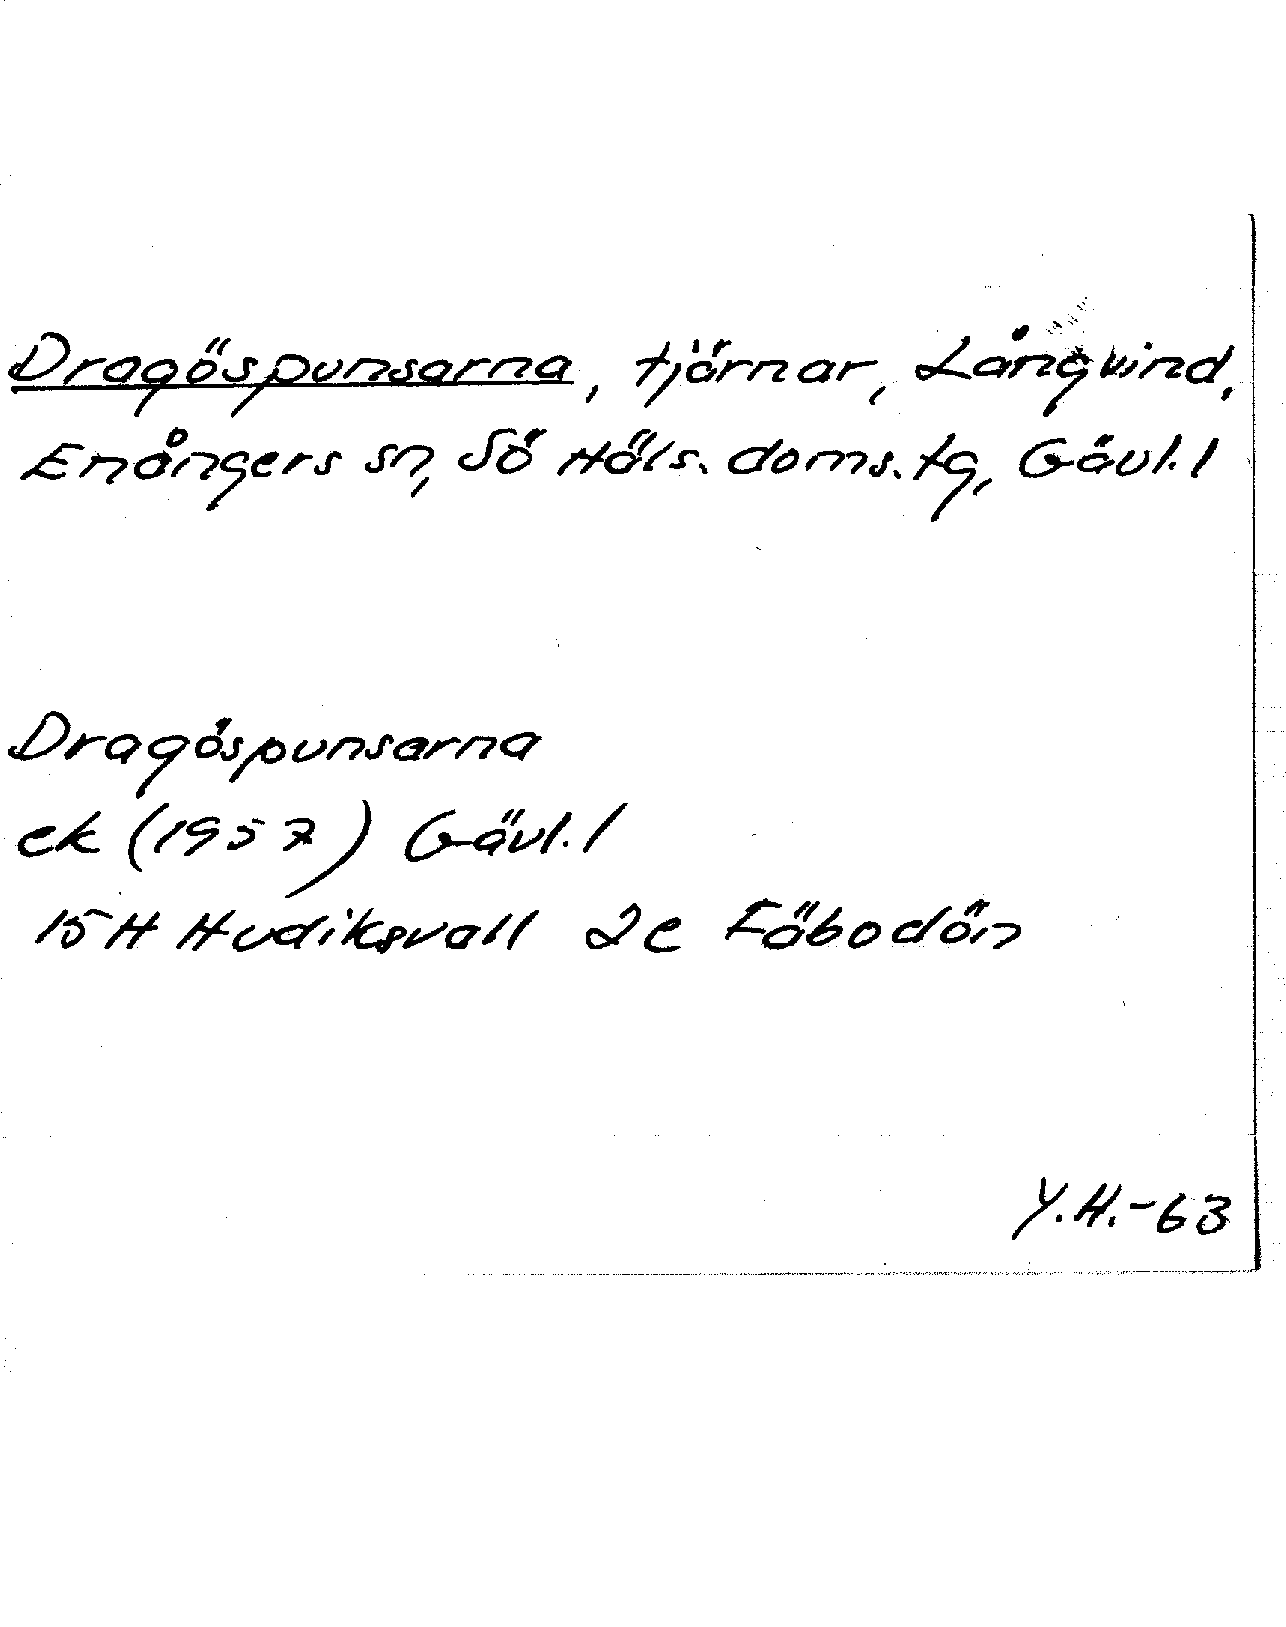 Dragöspunsarna, tjärnar, Långvind,
Enångers sn, Sö Häls. doms. tg, Gävl. l
Dragöspunsarna
ek (1957) Gävl. l
15 H Hudiksvall 2e Fäbodön
Y.H.-63